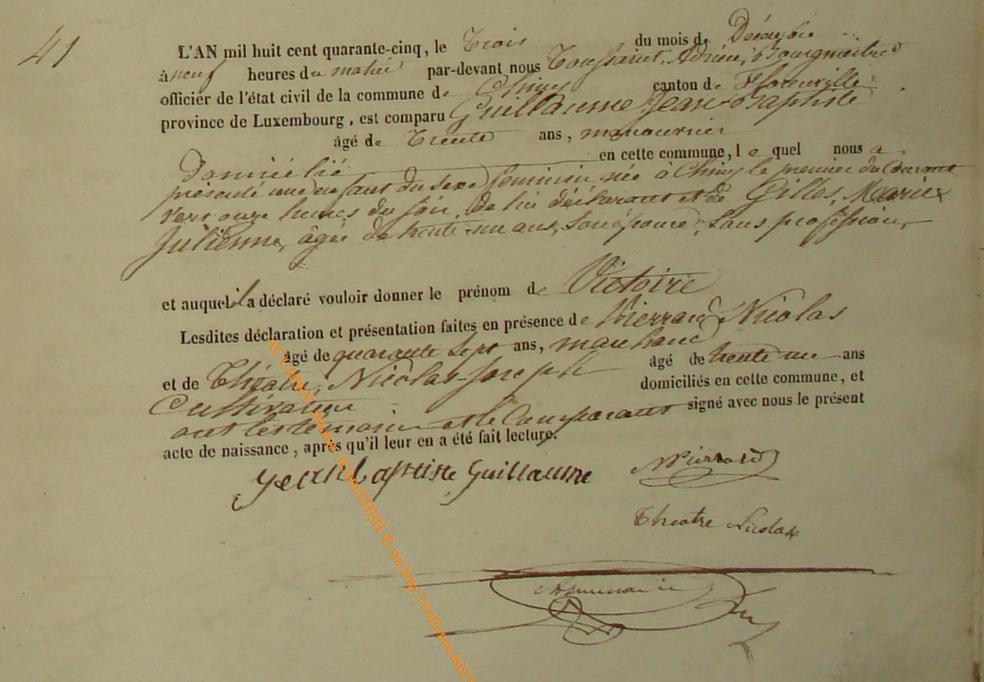 41
L'AN mil huit cent quarante-cinq, le Trois du mois de Décembre
à neuf heures du matin par-devant nous Toussaint, Adrien, Bourgmestre
officier de l'état civil de la commune de Chiny canton de Florenville
province de Luxembourg, est comparu Guillaume Jean-Baptiste
âgé de Trente ans, manouvrier
Domicilié en cette commune, le quel nous a
présenté une enfant du sexe feminin née à Chiny le premier du Courant
vers onze heures du soir, de lui déclarant et de Gilles, Marie
Julienne, âgée de trente-un ans, son épouse, sans profession,
et auquel il a déclaré vouloir donner le prénom de Victoire
Lesdites déclaration et présentation faites en présence de Pierrard Nicolas
âgé de quarante sept ans, marchand
et de Théatre, Nicolas-Joseph âgé de trente un ans
Cultivateur domiciliés en cette commune, et
ont les temoins et le Comparant signé avec nous le présent
acte de naissance, après qu'il leur en a été fait lecture.
Jean Baptiste Guillaume
NPierrard
Theatre Nicolas